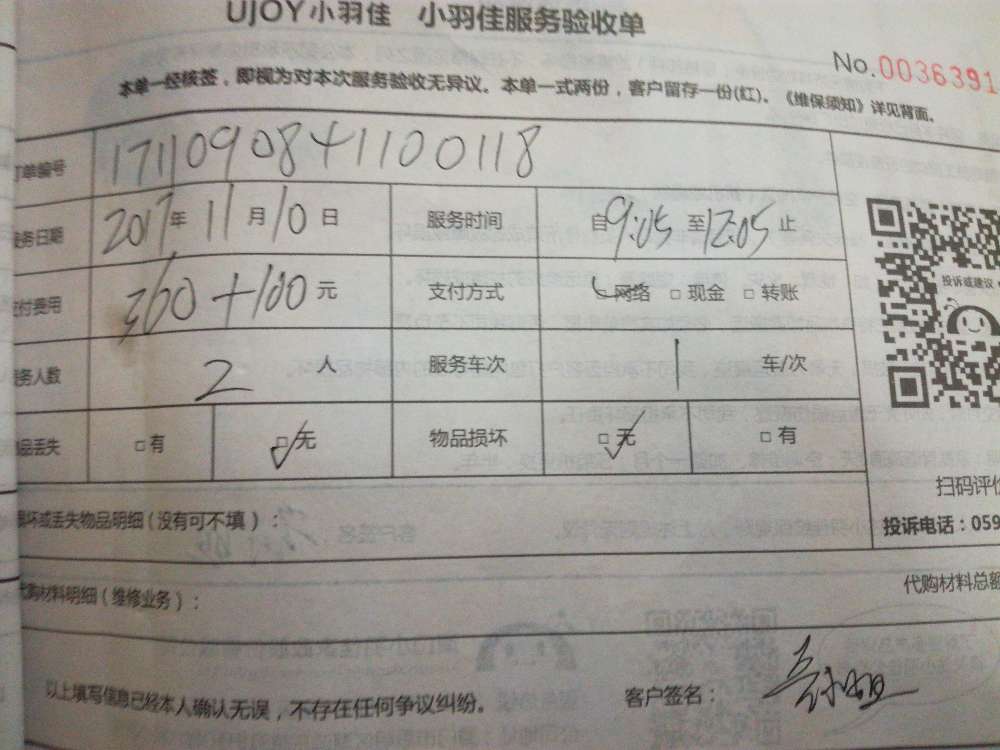 UJOY小羽佳 小羽佳服务验收单
No.0036391
本单一经核签，即视为对本次服务验收无异议。本单一式两份，客户留存一份(红)。《维保须知》详见背面。
单编号 1711090841100118
务日期 2017年 11月10日 服务时间 自9:05至12:05止
付费用 360+100元 支付方式 □网络 □现金 □转账
务人数 2人 服务车次 1车/次
品丢失 □有 □无 物品损坏 □无 □有
投诉或建议
扫码评价
坏或丢失物品明细(没有可不填)：
投诉电话：059
购材料明细(维修业务)：
代购材料总额
以上填写信息已经本人确认无误，不存在任何争议纠纷。
客户签名：